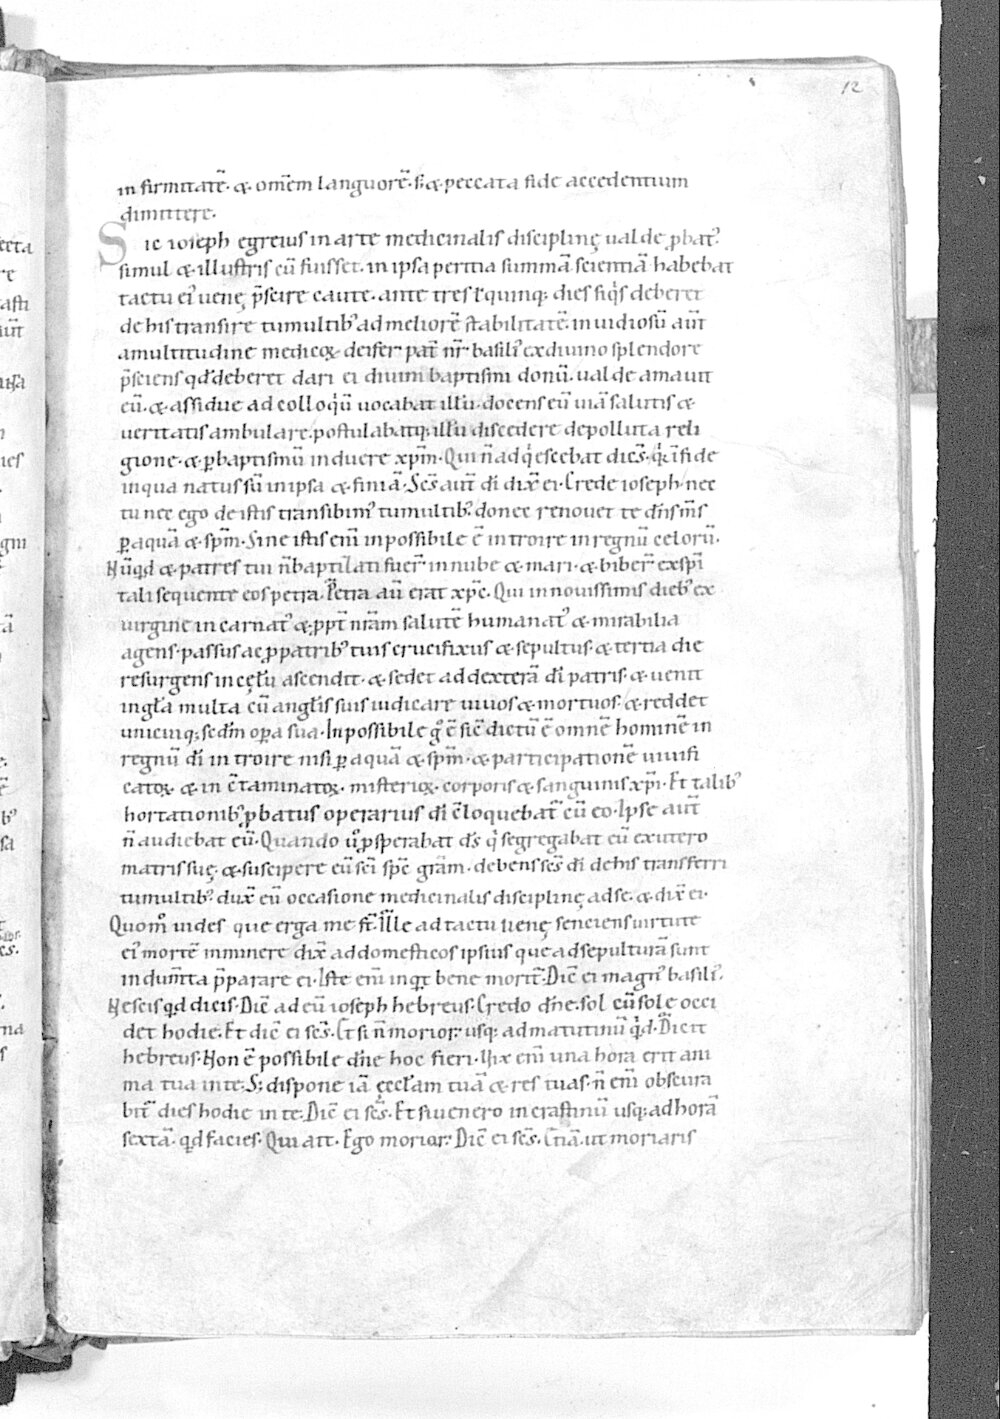 12
in firmitatē. & om̄em languorē. s; & peccata fide accedentium
dimittere.
Sic ioseph egreius in arte medicinalis disciplinę ualde ꝓbat᷒.
simul & illustris cū fuisset. in ipsa peritia summā scientiā habebat
tactu ei᷒ uenę p̄scire caute. ante tres ł quinq; dies siq̇s deberet
de his transire tumultib᷒ ad meliorē stabilitatē. inuidiosū aūt
a multitudine medicoꝝ. deifer pat̄ nr̄ basili᷒ ex diuino splendore
p̄sciens qđ deberet dari ei diuini baptismi donū. ualde amauit
eū. & assidue ad colloq̇ū uocabat illū. docens eū uiā salutis &
ueritatis ambulare. postulabatq; illū discedere de polluta reli
gione. & ꝑ baptismū induere xp̄m. Qui n̄ adq̇escebat dicēs. q̇a ī fide
in qua natus sū in ipsa & finiā. Sc̄s aūt dī dix̄ ei. Crede ioseph nec
tu nec ego de istis transibim᷒ tumultib᷒. donec renouet te dn̄s m̄s
ꝑ aquā & sp̄m. Sine istis enī inpossibile ē introire in regnū celorū.
Nūqđ & patres tui n̄ baptizati fuer̄ in nube & mari. & biber̄ ex sp̄i
tali sequente eos petra. Petra aū erat xp̄c. Qui in nouissimis dieb᷒ ex
uirgine incarnat᷒ & ppt̄ nr̄am salutē humanat᷒ & mirabilia
agens. passus ac ꝓ patrib᷒ tuis crucifixus & sepultus. & tertia die
resurgens in cęlū ascendit. & sedet ad dexterā dī patris. & uenit
in gl̄a multa cū angl̄is suis iudicare uiuos & mortuos. & reddet
unicuiq; sedm̄ oꝑa sua. Inpossibile g̊ ē sic̄ dictū ē omnē hominē in
regnū dī introire nisi ꝑ aquā & sp̄m. & participationē uiuifi
catoꝝ & in c̄taminatoꝝ. misterioꝝ. corporis & sanguinis xp̄i. Et talib᷒
hortationib᷒ ꝓbatus operarius dī c̄loquebat̄ cū eo. Ipse aūt
n̄ audiebat eū. Quando u̇ ꝓsperabat ds̄ q̇ segregabat eū ex utero
matris suę. & suscipere eū sc̄i sp̄c grām. debens sc̄s dī de his transferri
tumultib᷒. dux̄ eū occasione medicinalis disciplinę ad se. & dix̄ ei.
Quom̊ uides que erga me st̄. Ille ad tactū uenę senciens uirtute
ei᷒ mortē imminere dix̄ ad domesticos ipsius que ad sepulturā sunt
indum̄ta p̄parare ei. Iste enī inquit bene morit̄. Dic̄ ei magn᷒ basili᷒.
Nescis qđ dicis. Dic̄ ad eū ioseph hebreus. Credo dn̄e. sol cū sole occi
det hodie. Et dic̄ ei sc̄s. Et si n̄ morior. usq; ad matutinū q̇d. Dicit
hebreus. Non ē possibile dn̄e hoc fieri. Vix enī una hora erit ani
ma tua in te. S; dispone iā ęccl̄am tuā & res tuas. n̄ enī obscura
bit̄ dies hodie in te. Dic̄ ei sc̄s. Et si uenero in crastinū usq; ad horā
sextā. qđ facies. Qui ait. Ego morior. Dic̄ ei sc̄s. Etiā. ut moriaris